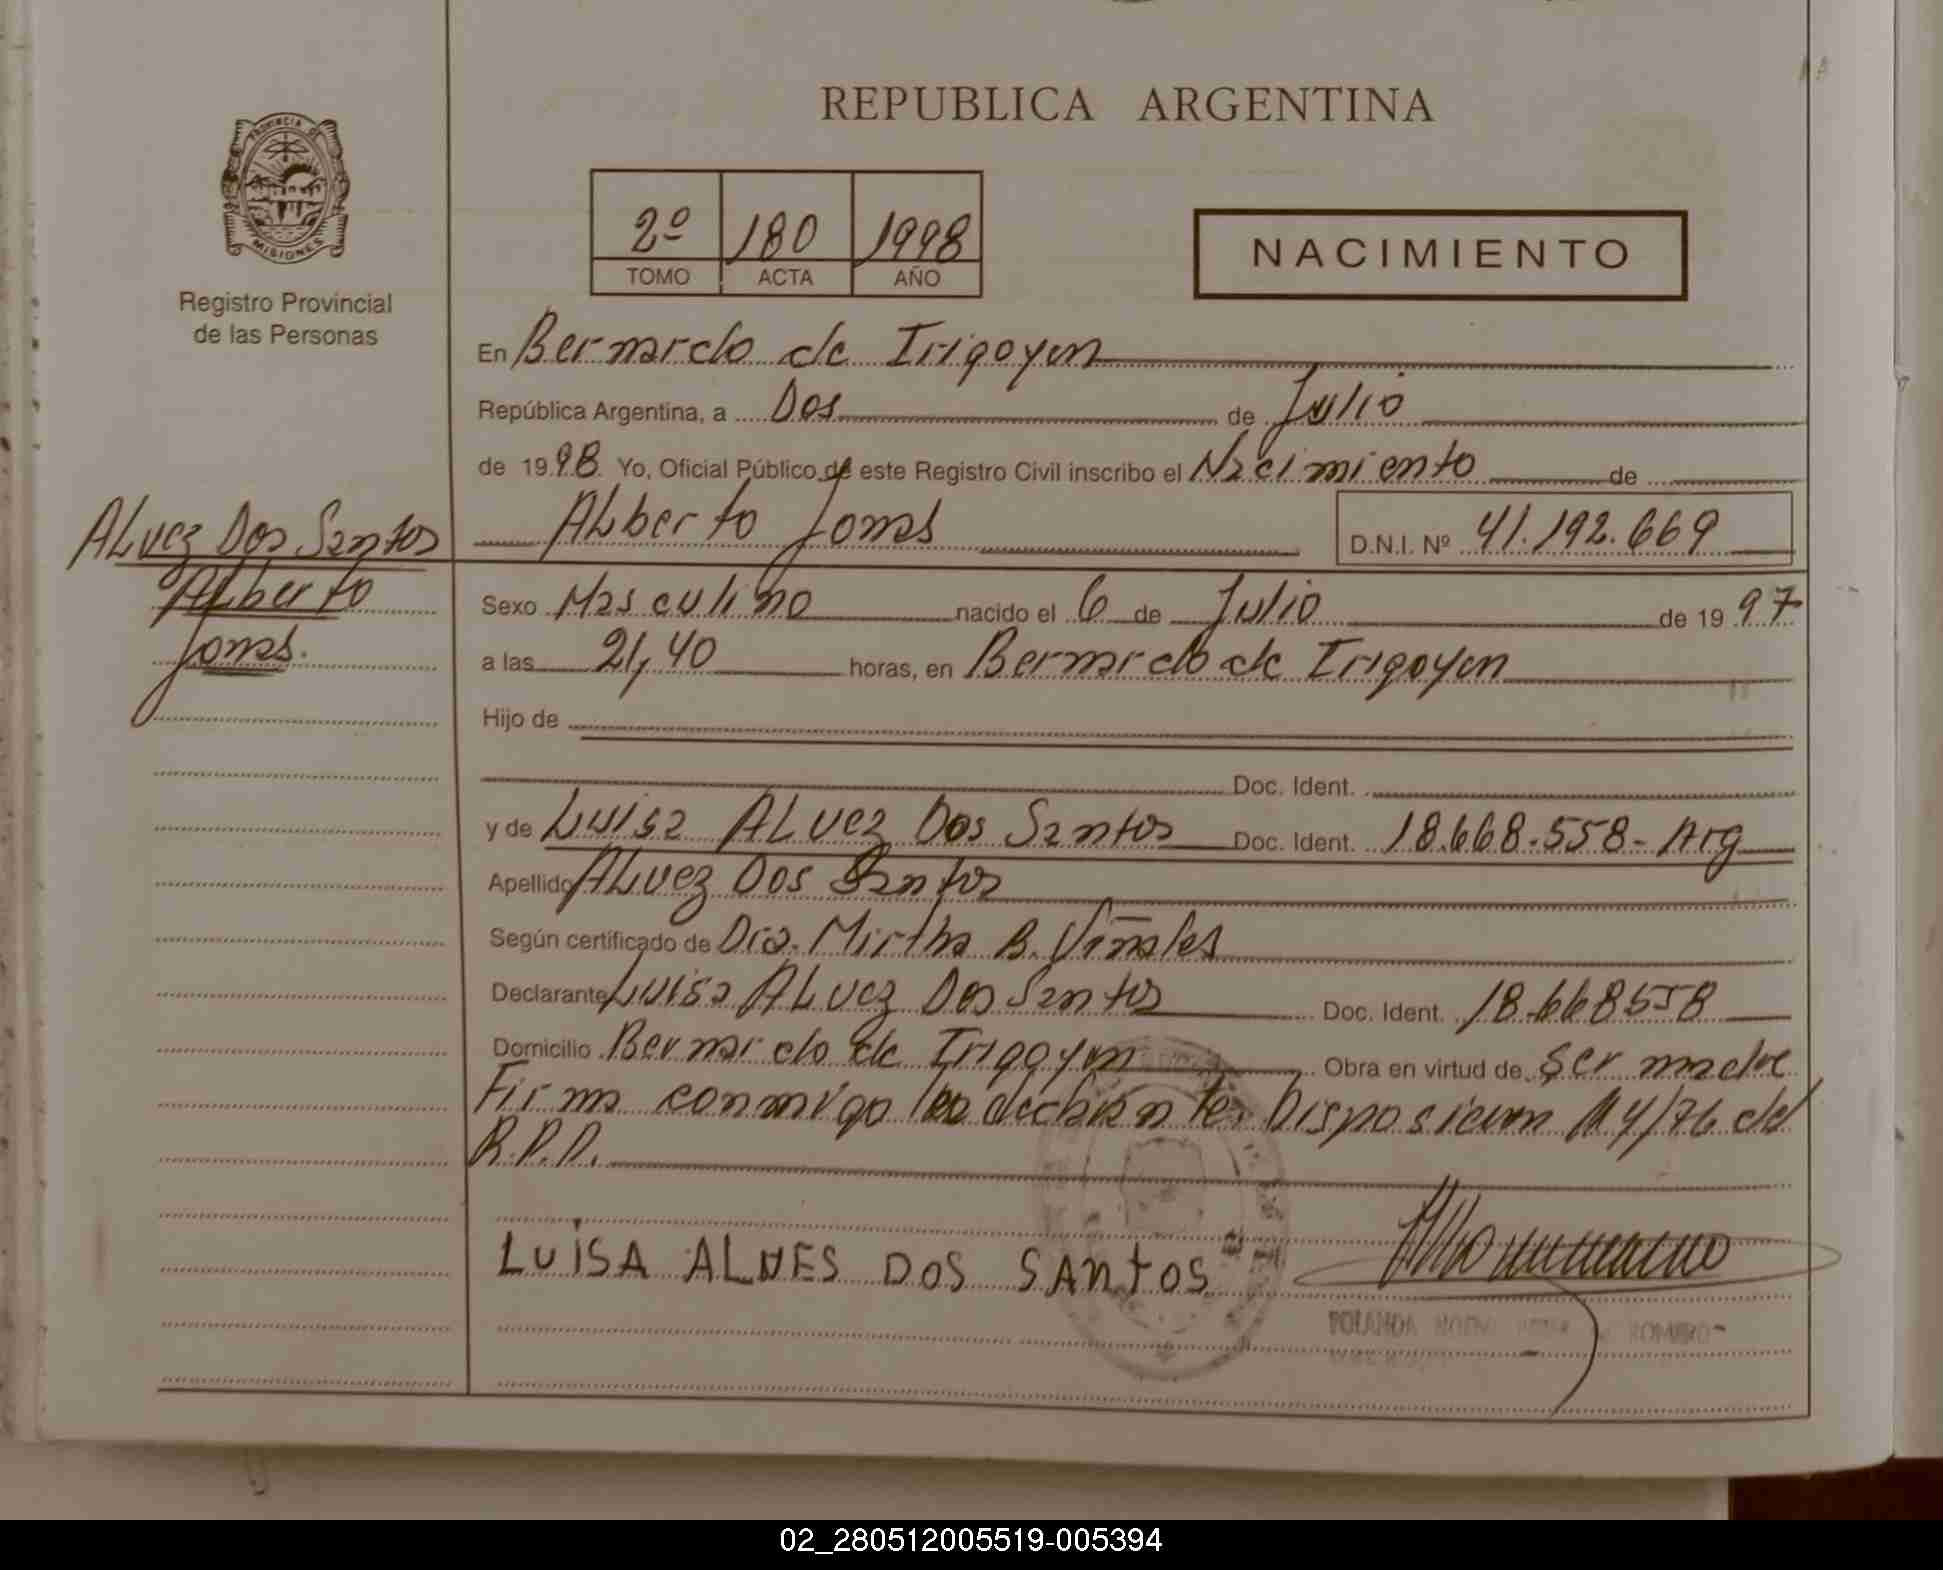 REPUBLICA ARGENTINA
PROVINCIA DE
MISIONES
Registro Provincial
de las Personas
2º 180 1998
TOMO ACTA AÑO
NACIMIENTO
En Bernardo de Irigoyen
República Argentina, a Dos de Julio
de 1998. Yo, Oficial Público de este Registro Civil inscribo el Nacimiento de
Alberto Jonas D.N.I. Nº 41.192.669
ALvez Dos Santos
Alberto
Jonas.
Sexo Masculino nacido el 6 de Julio de 1997
a las 21,40 horas, en Bernardo de Irigoyen
Hijo de
Doc. Ident.
y de Luisa ALvez Dos Santos Doc. Ident. 18.668.558- Arg
Apellido ALvez Dos Santos
Según certificado de Dra. Mirtha B. Viñales
Declarante Luisa ALvez Dos Santos Doc. Ident. 18.668558
Domicilio Bernardo de Irigoyen Obra en virtud de ser madre
Firma conmigo la declarante. Disposicion 4/76 del
R.P.P.
LUISA ALVES DOS SANTOS
ROMERO
02_280512005519-005394